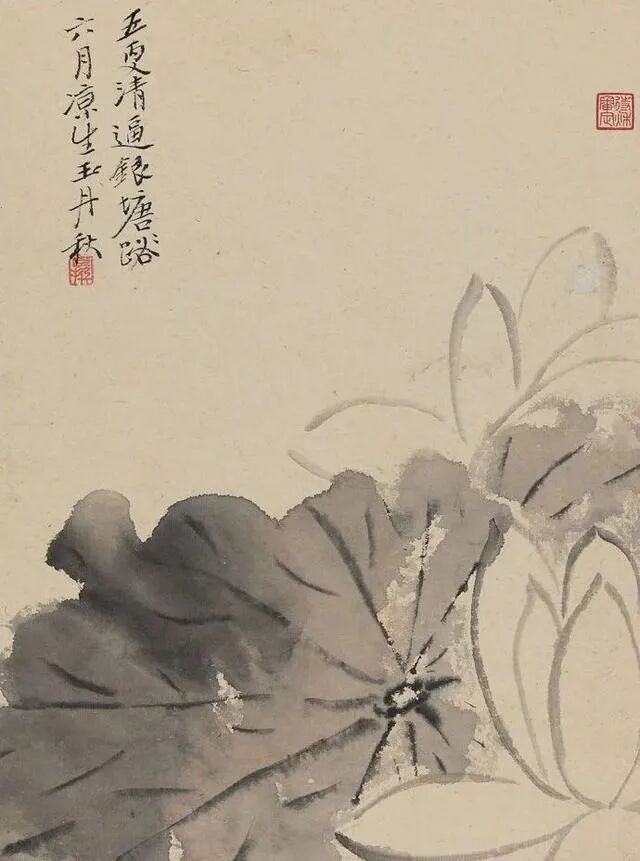 五更清逼銀塘路
六月凉生玉井秋